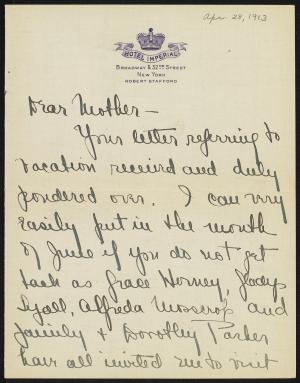 Apr 28, 1913
HOTEL IMPERIAL
BROADWAY & 32ND STREET
NEW YORK
ROBERT STAFFORD
Dear Mother –
Your letter referring to
vacation received and duly
pondered over. I can very
easily put in the month
of June if you do not get
back as Grace Horney, Gladys
Lyall, Alfreda Mosscrop and
family & Dorothy Parker
have all invited me to visit